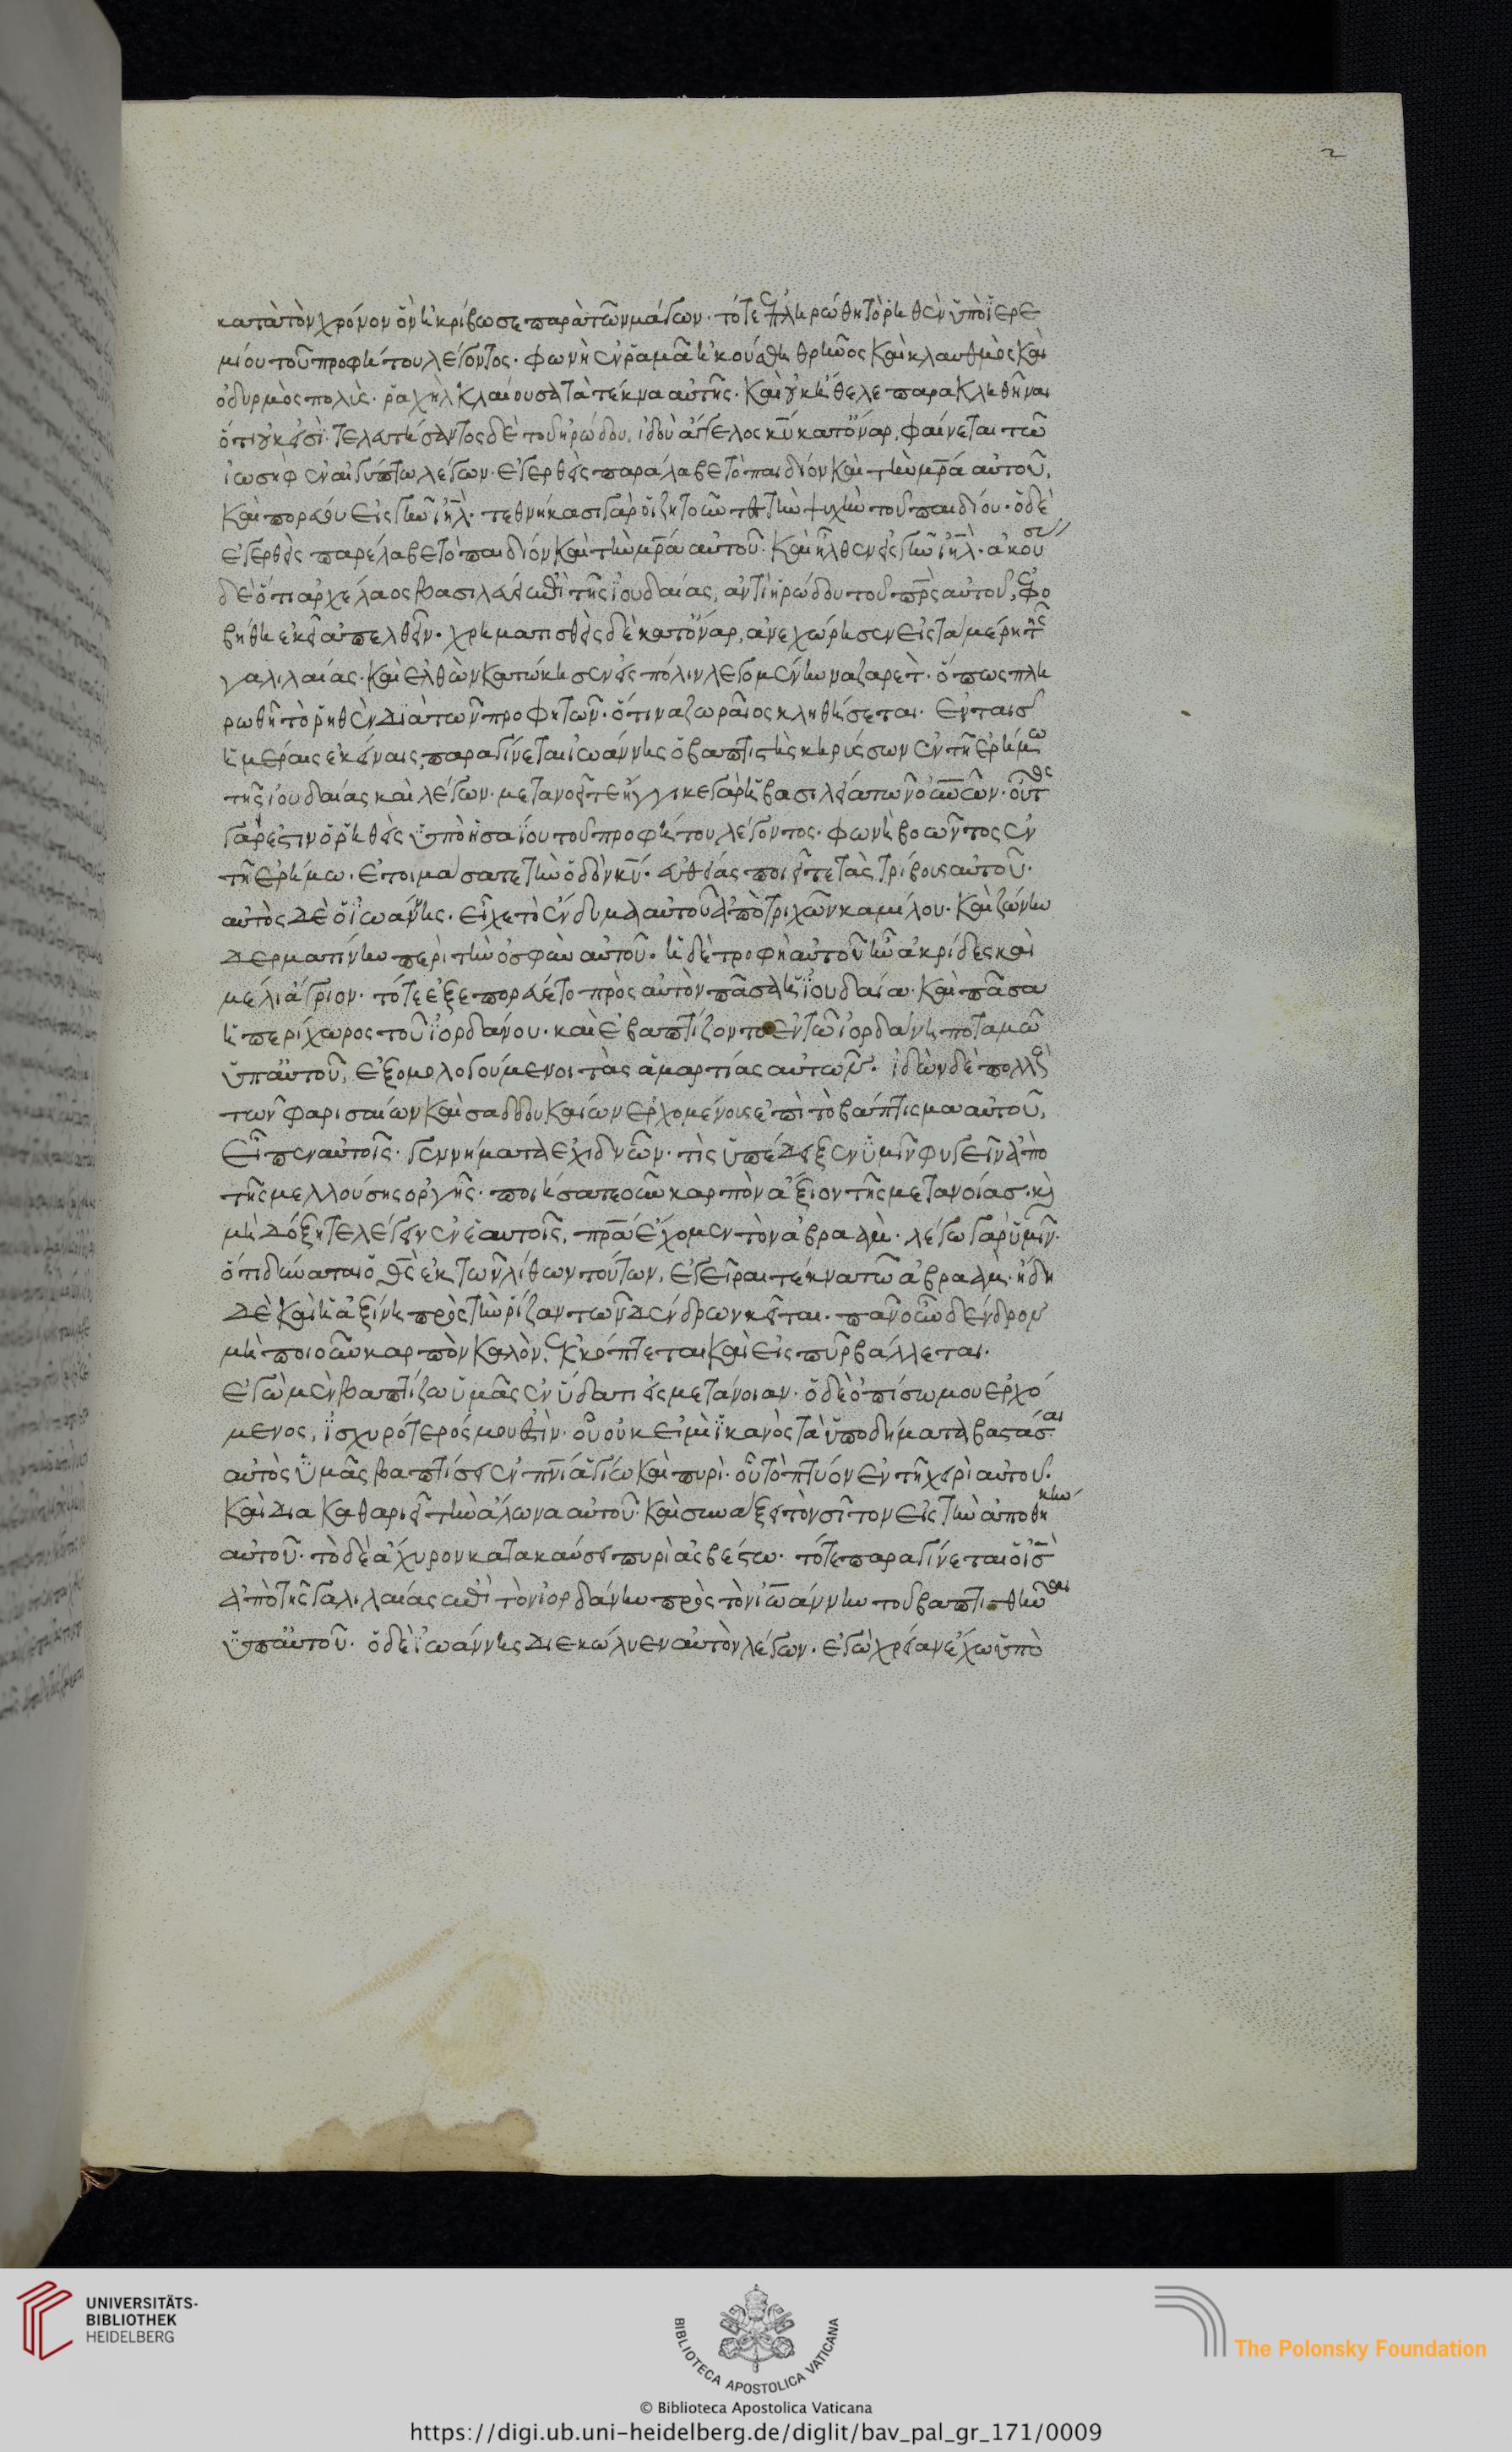 2
κατὰ τὸν χρόνον ὃν ἠκρίβωσε παρὰ τῶν μάγων. τότε ἐπληρώθη τὸ ῥηθὲν ὑπὸ ἱερε
μίου τοῦ προφήτου λέγοντος. φωνὴ ἐν ῥαμᾶ ἠκούσθη θρῆνος καὶ κλαυθμὸς καὶ
ὀδυρμὸς πολὺς. ῥαχὴλ κλαίουσα τὰ τέκνα αὐτῆς. καὶ οὐκ ἤθελε παρακληθῆναι
ὅτι οὐκ εἰσὶ. τελευτήσαντος δὲ τοῦ ἡρώδου, ἰδοὺ ἄγγελος κυ κατ' ὄναρ, φαίνεται τῶ
ἰωσὴφ ἐν αἰγύπτω λέγων. ἐγερθεὶς παράλαβε τὸ παιδίον καὶ τὴν μρα αὐτοῦ,
καὶ πορεύου εἰς γῆν ιηλ. τεθνήκασι γὰρ οἱ ζητοῦντες τὴν ψυχὴν τοῦ παιδίου. ὁ δὲ
ἐγερθεὶς παρέλαβε τὸ παιδίον καὶ τὴν μρα αὐτοῦ. καὶ ἦλθεν εἰς γῆν ιηλ. ἀκούσας
δὲ ὅτι ἀρχέλαος βασιλεύει ἐπὶ τῆς ἰουδαίας, ἀντὶ ἡρώδου τοῦ πρς αὐτοῦ, ἐφο
βήθη ἐκεῖ ἀπελθεῖν. χρηματισθεὶς δὲ κατ' ὄναρ, ἀνεχώρησεν εἰς τὰ μέρη τῆς
γαλιλαίας. καὶ ἐλθὼν κατώκησεν εἰς πόλιν λεγομένην ναζαρετ. ὅπως πλη
ρωθῆ τὸ ῥηθὲν διὰ τῶν προφητῶν. ὅτι ναζωραῖος κληθήσεται. Ἐν ταῖς
ἡμέραις ἐκείναις, παραγίνεται ἰωάννης ὁ βαπτιστὴς κηρύσσων ἐν τῆ ἐρήμω
τῆς ἰουδαίας καὶ λέγων. μετανοεῖτε ἤγγικε γὰρ ἡ βασιλεία τῶν οὐνῶν. οὗτος
γὰρ ἐστιν ὁ ῥηθεὶς ὑπὸ ἡσαΐου τοῦ προφήτου λέγοντος. φωνὴ βοῶντος ἐν
τῆ ἐρήμω. ἑτοιμάσατε τὴν ὁδὸν κυ. εὐθείας ποιεῖτε τὰς τρίβους αὐτοῦ.
αὐτὸς δὲ ὁ ἰωάννης. εἶχε τὸ ἔνδυμα αὐτοῦ ἀπὸ τριχῶν καμήλου. καὶ ζώνην
δερματίνην περὶ τὴν ὀσφὺν αὐτοῦ. ἡ δὲ τροφὴ αὐτοῦ ἦν ἀκρίδες καὶ
μέλι ἄγριον. τότε ἐξεπορεύετο πρὸς αὐτὸν πᾶσα ἡ ἰουδαία. καὶ πᾶσα
ἡ περίχωρος τοῦ ἰορδάνου. καὶ ἐβαπτίζοντο ἐν τῶ ἰορδάνη ποταμῶ
ὑπ' αὐτοῦ, ἐξομολογούμενοι τὰς ἁμαρτίας αὐτῶν. ἰδὼν δὲ πολλοὺς
τῶν φαρισαίων καὶ σαδδουκαίων ἐρχομένους ἐπὶ τὸ βάπτισμα αὐτοῦ,
εἶπεν αὐτοῖς. γεννήματα ἐχιδνῶν. τίς ὑπέδειξεν ὑμῖν φυγεῖν ἀπὸ
τῆς μελλούσης ὀργῆς. ποιήσατε οὖν καρπὸν ἄξιον τῆς μετανοίας. καὶ
μὴ δόξητε λέγειν ἐν ἑαυτοῖς, πρα ἔχομεν τὸν ἀβραάμ. λέγω γὰρ ὑμῖν.
ὅτι δύναται ὁ θς ἐκ τῶν λίθων τούτων, ἐγεῖραι τέκνα τῶ ἀβραάμ. ἤδη
δὲ καὶ ἡ ἀξίνη πρὸς τὴν ῥίζαν τῶν δένδρων κεῖται. πᾶν οὖν δένδρον
μὴ ποιοῦν καρπὸν καλὸν, ἐκκόπτεται καὶ εἰς πῦρ βάλλεται.
ἐγὼ μὲν βαπτίζω ὑμᾶς ἐν ὕδατι εἰς μετάνοιαν. ὁ δὲ ὀπίσω μου ἐρχό
μενος, ἰσχυρότερός μου ἐστὶν. οὗ οὐκ εἰμὶ ἱκανὸς τὰ ὑποδήματα βαστάσαι.
αὐτὸς ὑμᾶς βαπτίσει ἐν πνι ἁγίω καὶ πυρὶ. οὗ τὸ πτύον ἐν τῆ χειρὶ αὐτοῦ.
καὶ διακαθαριεῖ τὴν ἅλωνα αὐτοῦ. καὶ συνάξει τὸν σῖτον εἰς τὴν ἀποθήκην
αὐτοῦ. τὸ δὲ ἄχυρον κατακαύσει πυρὶ ἀσβέστω. τότε παραγίνεται ὁ ις
ἀπὸ τῆς γαλιλαίας ἐπὶ τὸν ἰορδάνην πρὸς τὸν ἰωάννην τοῦ βαπτισθῆναι
ὑπ' αὐτοῦ. ὁ δὲ ἰωάννης διεκώλυεν αὐτὸν λέγων. ἐγὼ χρείαν ἔχω ὑπὸ
UNIVERSITÄTS-
BIBLIOTHEK
HEIDELBERG
BIBLIOTECA APOSTOLICA VATICANA
The Polonsky Foundation
© Biblioteca Apostolica Vaticana
https://digi.ub.uni-heidelberg.de/diglit/bav_pal_gr_171/0009